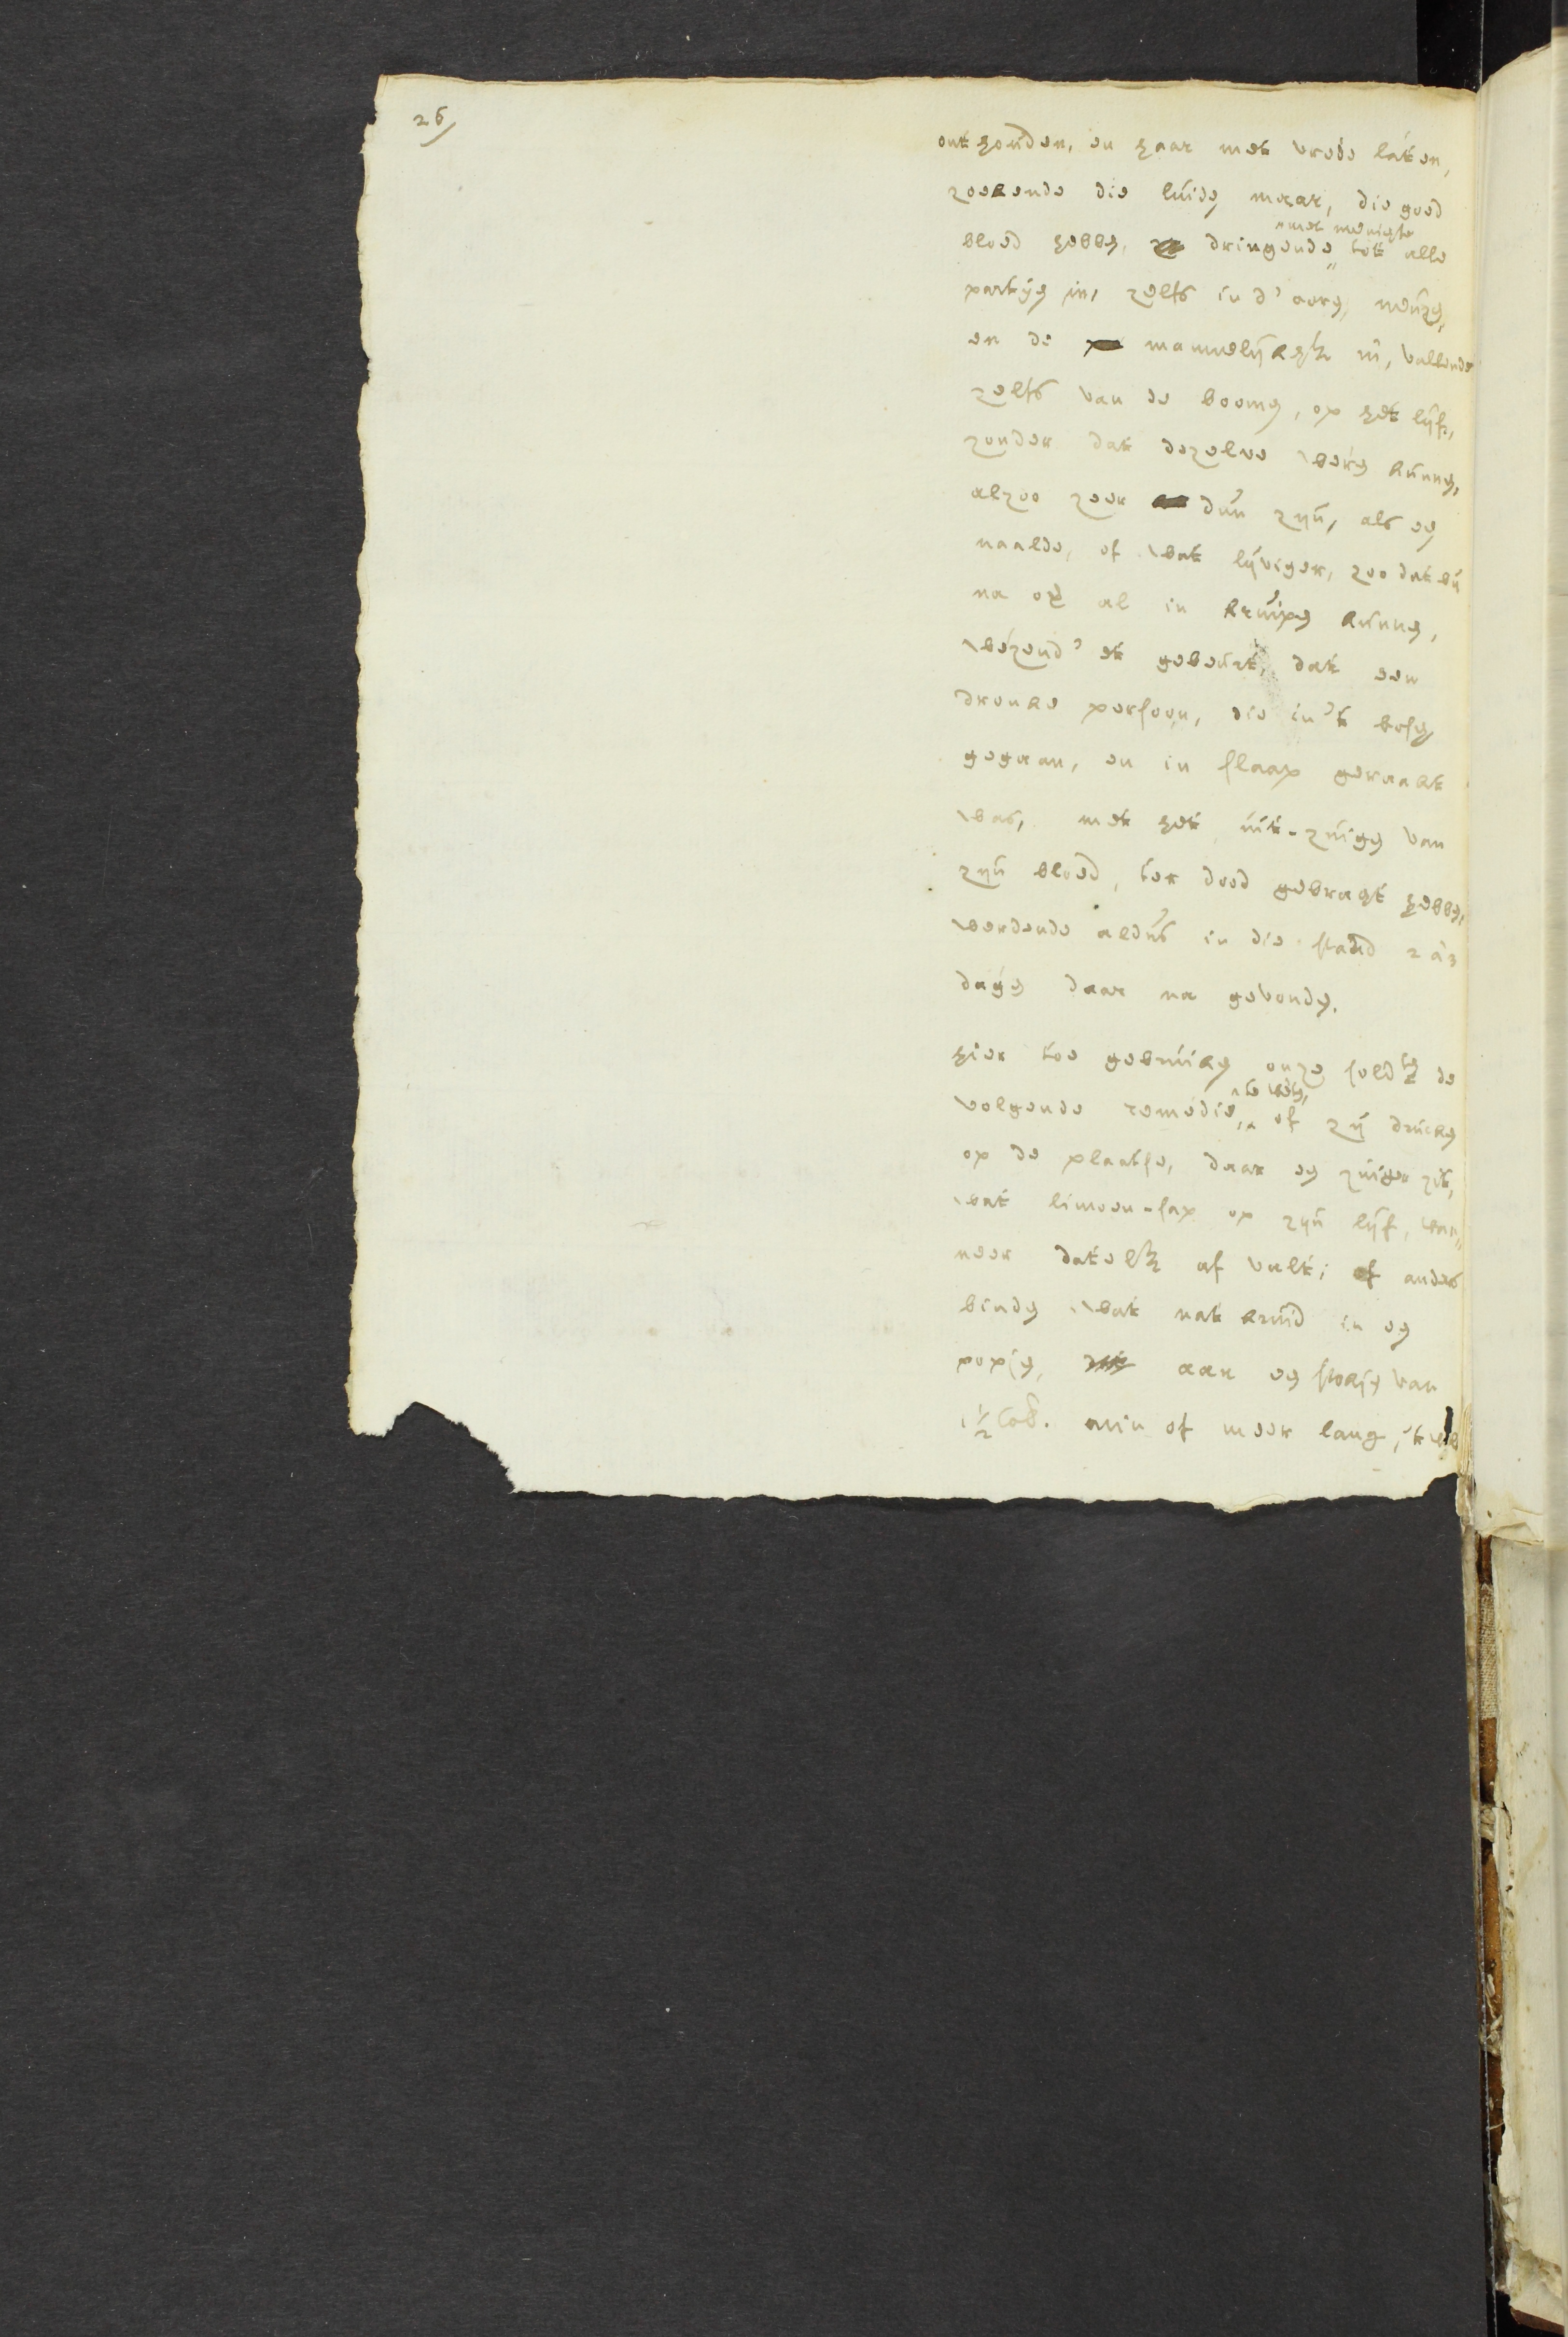 26/
onthouden, en haar met vrede laten,
zoekende die luiden maar, die goed
bloed hebben, dringende " tot alle
" met menigte
partijen in, zelfs in d' ooren, neuzen,
en de mannelijkh: in, vallende
zelfs van de boomen, op het lijf,
zonder dat dezelve weren kunnen,
alzoo zeer dun zijn, als een
naalde, of wat lijviger, zoo dat bij
na over al in kruipen kunnen,
wezend' et gebeurt, dat een
dronke persoon, die in 't bosch
gegaan, en in slaap geraakt
was, met het uit-zuigen van
zijn bloed, ter dood gebragt hebben,
werdende aldus in die stand 2 à 3
dagen daar na gevonden.
hier toe gebruiken onze soldten de
volgende remedie, of zij drucken
^ te weten,
op de plaatse, daar en zuiger zit,
wat limoen-sap op zijn lijf, wan„
neer datelh: af valt; of anders
binden wat nat kruid in een
popjen, aan een stokjen van
1 1/2 Cob. min of meer lang, 't welk